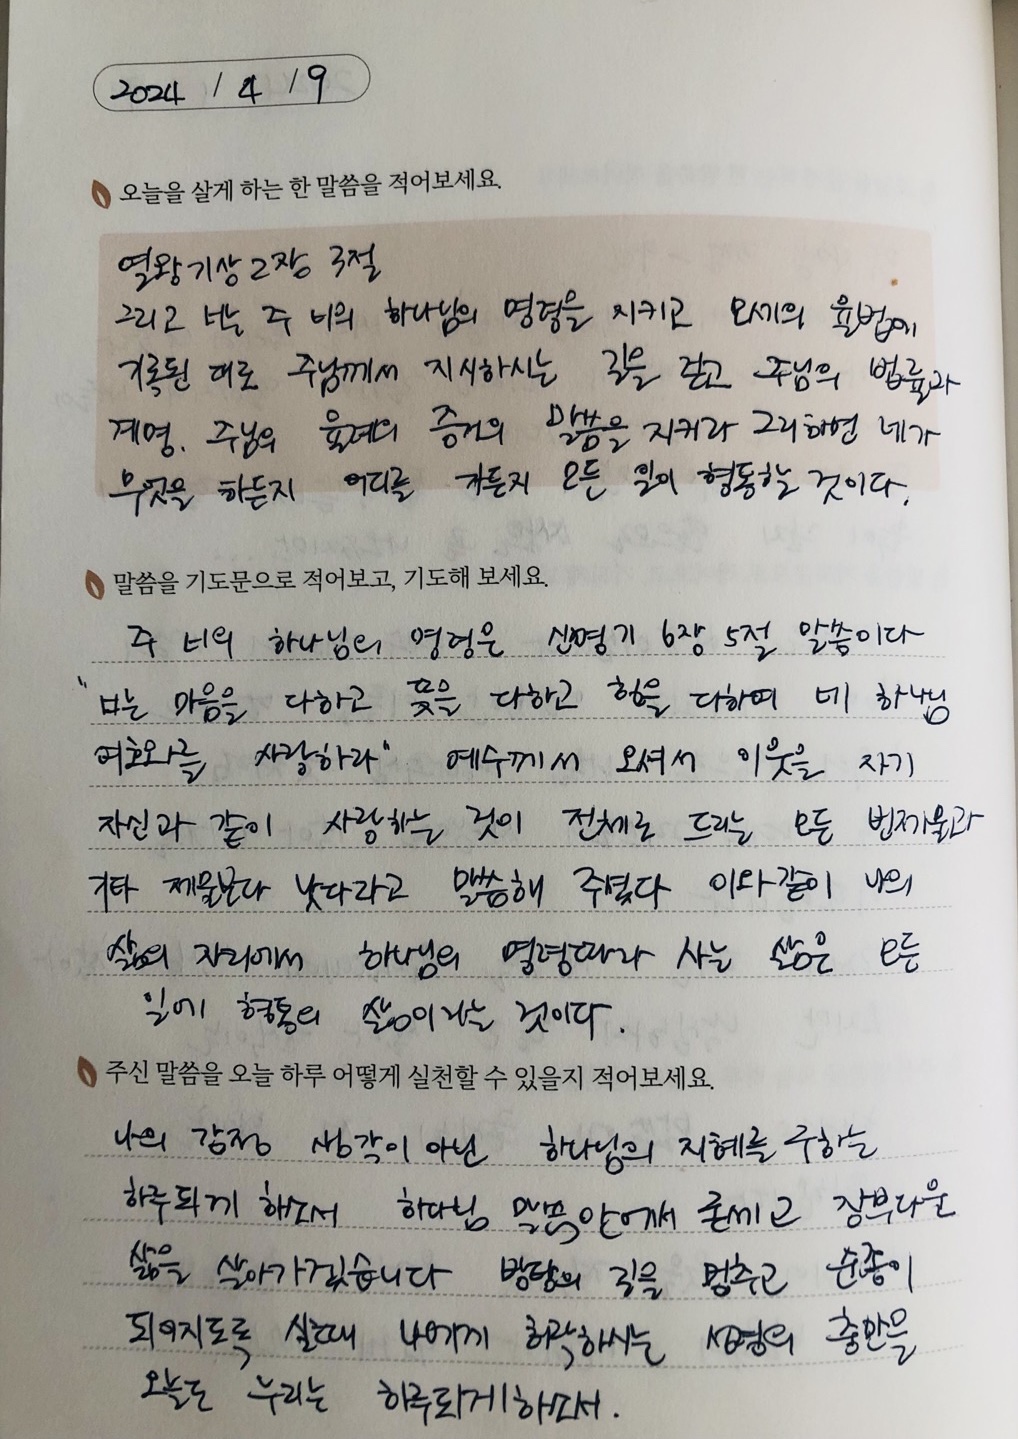 2024 / 4 / 9
오늘을 살게 하는 한 말씀을 적어보세요.
열왕기상 2장 3절
그리고 너는 주 너의 하나님의 명령을 지키고 모세의 율법에
기록된 대로 주님께서 지시하시는 길을 걷고 주님의 법률과
계명, 주님의 율례와 증거의 말씀을 지키라 그리하면 네가
무엇을 하든지 어디를 가든지 모든 일이 형통할 것이다.
말씀을 기도문으로 적어보고, 기도해 보세요.
주 너의 하나님의 명령은 신명기 6장 5절 말씀이다
"너는 마음을 다하고 뜻을 다하고 힘을 다하여 네 하나님
여호와를 사랑하라" 예수께서 오셔서 이웃을 자기
자신과 같이 사랑하는 것이 전체로 드리는 모든 번제물과
기타 제물보다 낫다라고 말씀해 주셨다 이와같이 나의
삶의 자리에서 하나님의 명령따라 사는 삶은 모든
일에 형통의 삶이라는 것이다.
주신 말씀을 오늘 하루 어떻게 실천할 수 있을지 적어보세요.
나의 감정 생각이 아닌 하나님의 지혜를 구하는
하루되게 하소서 하나님 말씀안에서 굳세고 장부다운
삶을 살아가겠습니다 방탕의 길을 멈추고 순종이
되어지도록, 실로 나에게 허락하시는 성령의 충만을
오늘도 누리는 하루되게하소서.